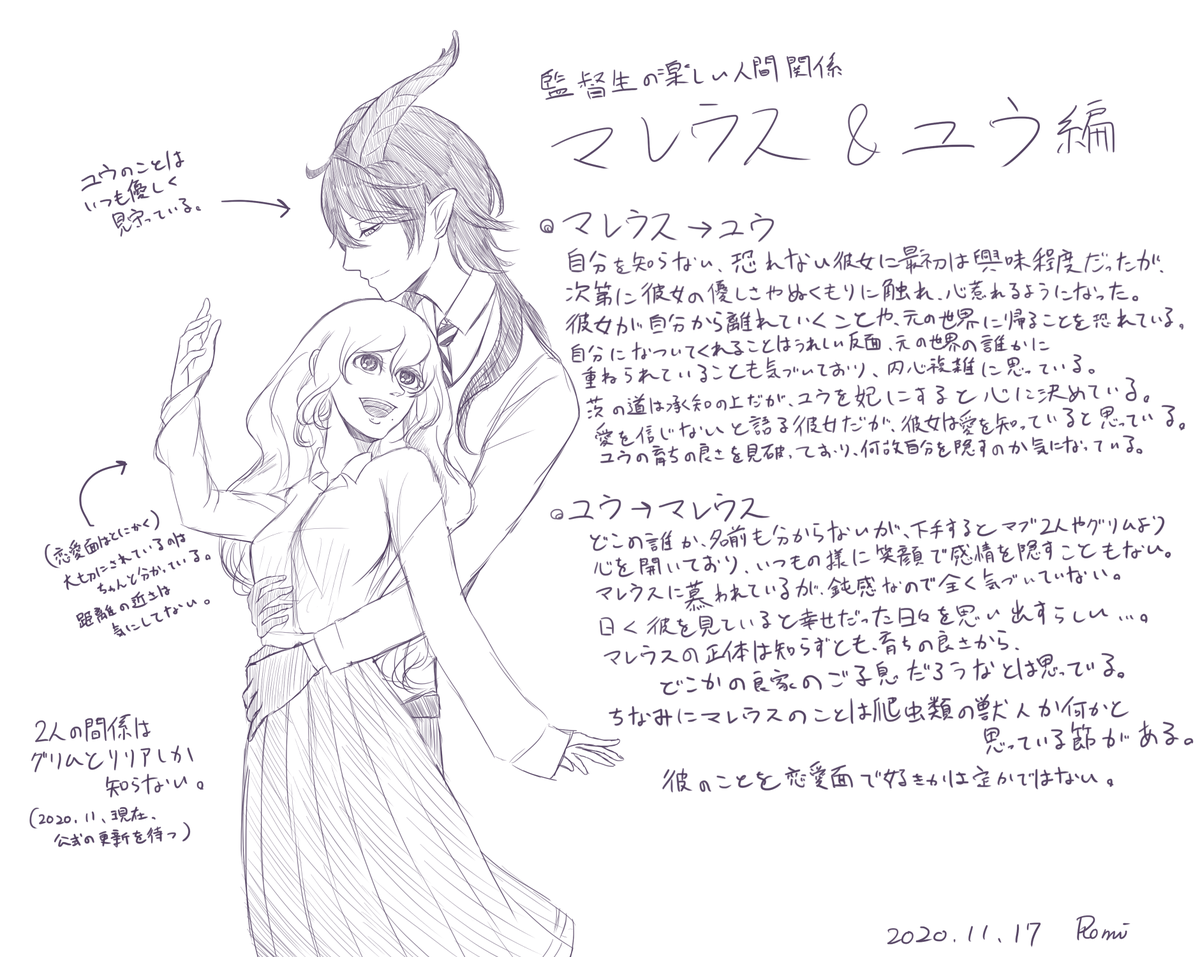 監督生の楽しい人間関係
マレウス & ユウ編
ユウのことは
いつも優しく
見守っている。
◎マレウス→ユウ
自分を知らない、恐れない彼女に最初は興味程度だったが、
次第に彼女の優しさやぬくもりに触れ、心惹れるようになった。
彼女が自分から離れていくことや、元の世界に帰ることを恐れている。
自分になついてくれることはうれしい反面、元の世界の誰かに
重ねられていることも気づいており、内心複雑に思っている。
茨の道は承知の上だが、ユウを妃にすると心に決めている。
愛を信じないと語る彼女だが、彼女は愛を知っていると思っている。
ユウの育ちの良さを見破っており、何故自分を隠すのか気になっている。
◎ユウ→マレウス
どこの誰か、名前も分からないが、下手するとマブ2人やグリムより
心を開いており、いつもの様に笑顔で感情を隠すこともない。
マレウスに慕われているが、鈍感なので全く気づいていない。
曰く彼を見ていると幸せだった日々を思い出すらしい…。
マレウスの正体は知らずとも、育ちの良さから、
どこかの良家のご子息だろうなとは思っている。
ちなみにマレウスのことは爬虫類の獣人か何かと
思っている節がある。
彼のことを恋愛面で好きかは定かではない。
(恋愛面はとにかく)
大切にされているのは
ちゃんと分かっている。
距離の近さは
気にしてない。
2人の間係は
グリムとリリアしか
知らない。
(2020.11、現在、
公式の更新を待つ)
2020.11.17 Romi